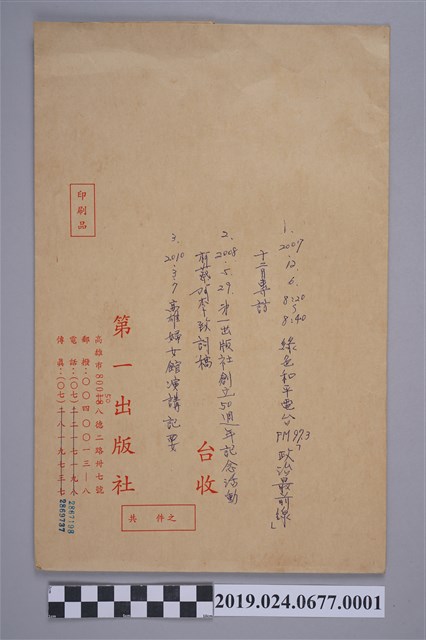 1. 2007.12.6. 8:20~8:40 綠色和平電台 FM97.3「政治最前線」
專訪
2. 2008.5.29. 第一出版社創立50週年記念活動
致詞稿
3. 2010.3.7 高雄婦女館演講記要
台收
印刷品
第一出版社
高雄市80048八德二路卅七號
郵撥：〇〇四〇〇一三—八
電話：(〇七)
2867198
傳真：(〇七)
2869737
共 件之
2019.024.0677.0001